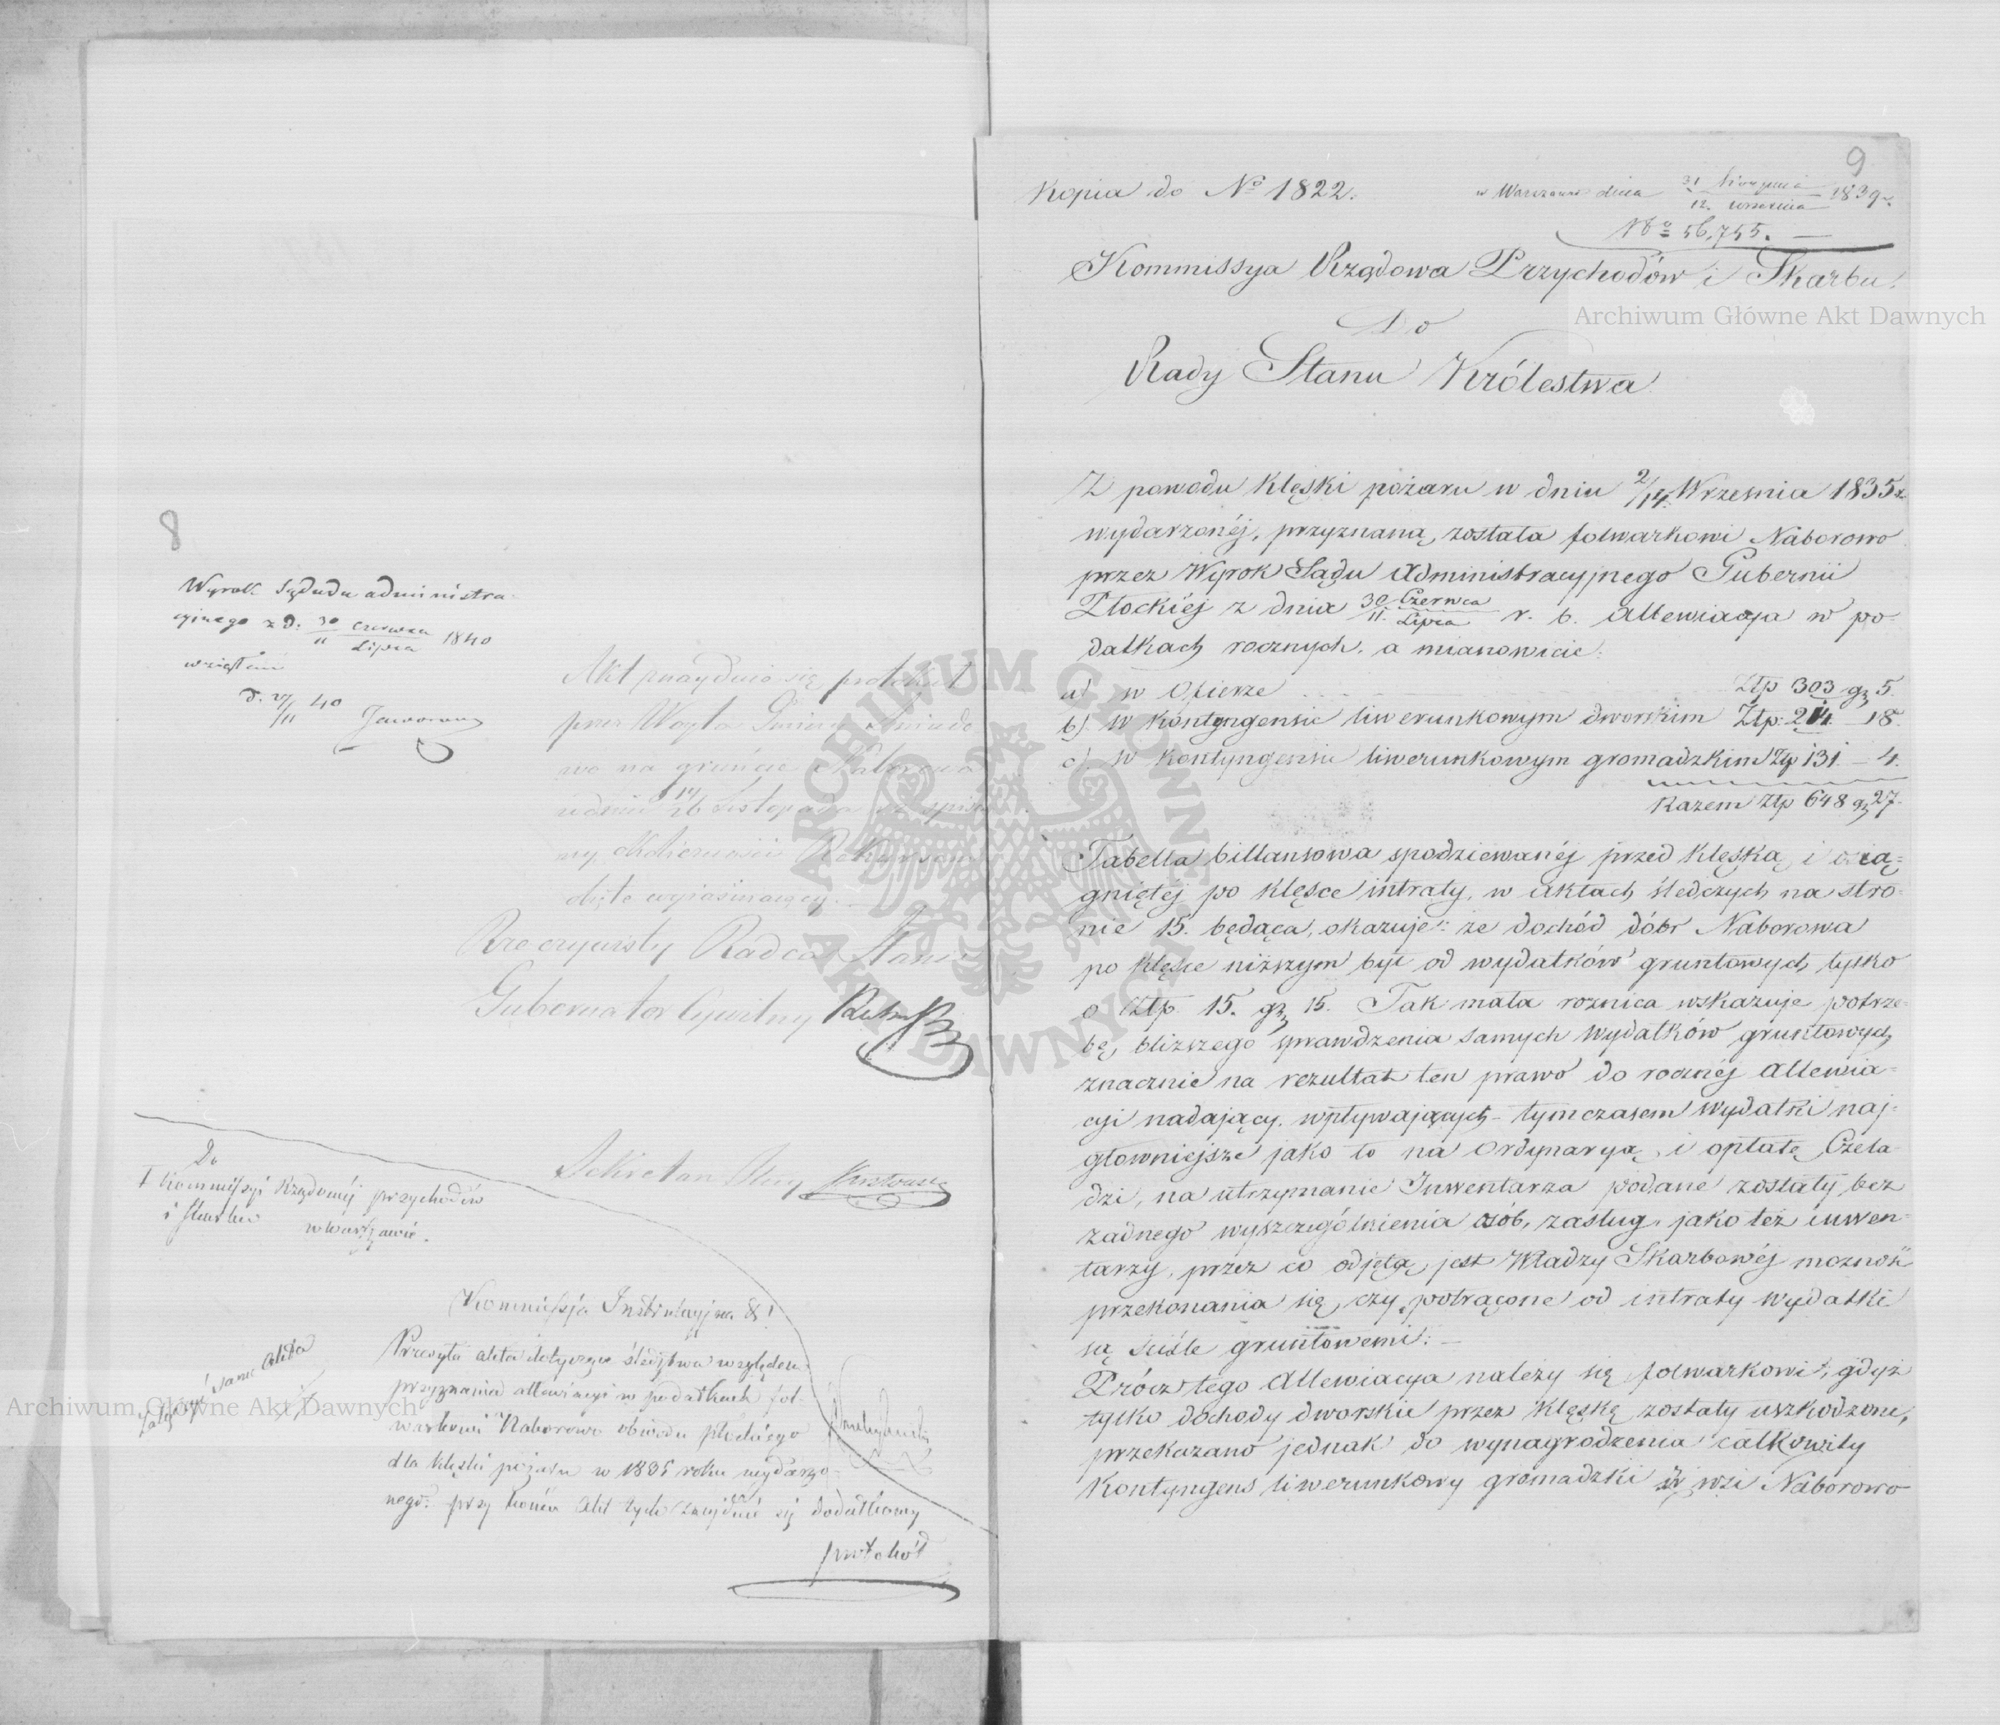 8
Wyrok Sądu administra-
cyjnego z d. 30 Czerwca / 11 Lipca 1840
wziąłem
d. 27/11 40
Akt znayduie się protokół
przez Woyta Gminy
wo na gruncie Naborowo
w dniu 14/26 Listopada
Rzeczywisty Radca Stanu
Gubernator Cywilny
Sekretarz
Do
Kommissyi Rządowéj przychodów
i Skarbu
w Warszawie.
Kommissja Instrukcyjna &
Przesyła akta dotyczące śledztwa względem
przyznania allewiacyi w podatkach fol-
warkowi Naborowo obwodu płockiego
dla klęski pożaru w 1835 roku wydarzo-
nego. przy końcu akt tych znayduie się dodatkowy
protokół
Załączyć dane akta
9
Kopia do Nº 1822.
w Warszawie dnia 31 Sierpnia / 12 Września 1839 r.
Nº 56,755.
Kommissya Rządowa Przychodów i Skarbu.
Do
Rady Stanu Królestwa
Z powodu klęski pożaru w dniu 2/14 Września 1835 r.
wydarzonéj, przyznaną została folwarkowi Naborowo
przez Wyrok Sądu Administracyjnego Gubernii
Płockiéj z dnia 30 Czerwca / 11 Lipca r. b. Allewiacya w po-
datkach rocznych, a mianowicie:
a) w Ofierze Złp 303 gr 5.
b) w kontyngensie liwerunkowym dworskim Złp. 214 – 18.
c) w kontyngensie liwerunkowym gromadzkim Złp 131. – 4.
Razem Złp 648 gr 27.
Tabella billansowa spodziewanéj przed klęską i osią-
gniętéj po klęsce intraty, w aktach śledczych na stro-
nie 15. będąca, okazuje: że dochód dóbr Naborowa
po klęsce niższym był od wydatków gruntowych tylko
o Złp. 15. gr 15. Tak mała roznica wskazuje potrze-
bę bliższego sprawdzenia samych wydatków gruntowych
znacznie na rezultat ten prawo do rocznéj Allewia-
cyi nadający, wpływających – tymczasem wydatki naj-
głowniejsze jako to na ordynaryą, i opłatę Czela-
dzi, na utrzymanie Inwentarza podane zostały bez
żadnego wyszczególnienia osób, zasług, jako też inwen-
tarzy, przez co odjętą jest Władzy Skarbowéj moznośc
przekonania się, czy potrącone od intraty wydatki
są ściśle gruntowemi. –
Prócz tego Allewiacya należy się folwarkowi, gdyż
tylko dochody dworskie przez klęskę zostały uszkodzone,
przekazano jednak do wynagrodzenia całkowity
kontyngens liwerunkowy gromadzki z wsi Naborowo
Archiwum Główne Akt Dawnych
Archiwum Główne Akt Dawnych
ARCHIWUM GŁÓWNE AKT DAWNYCH